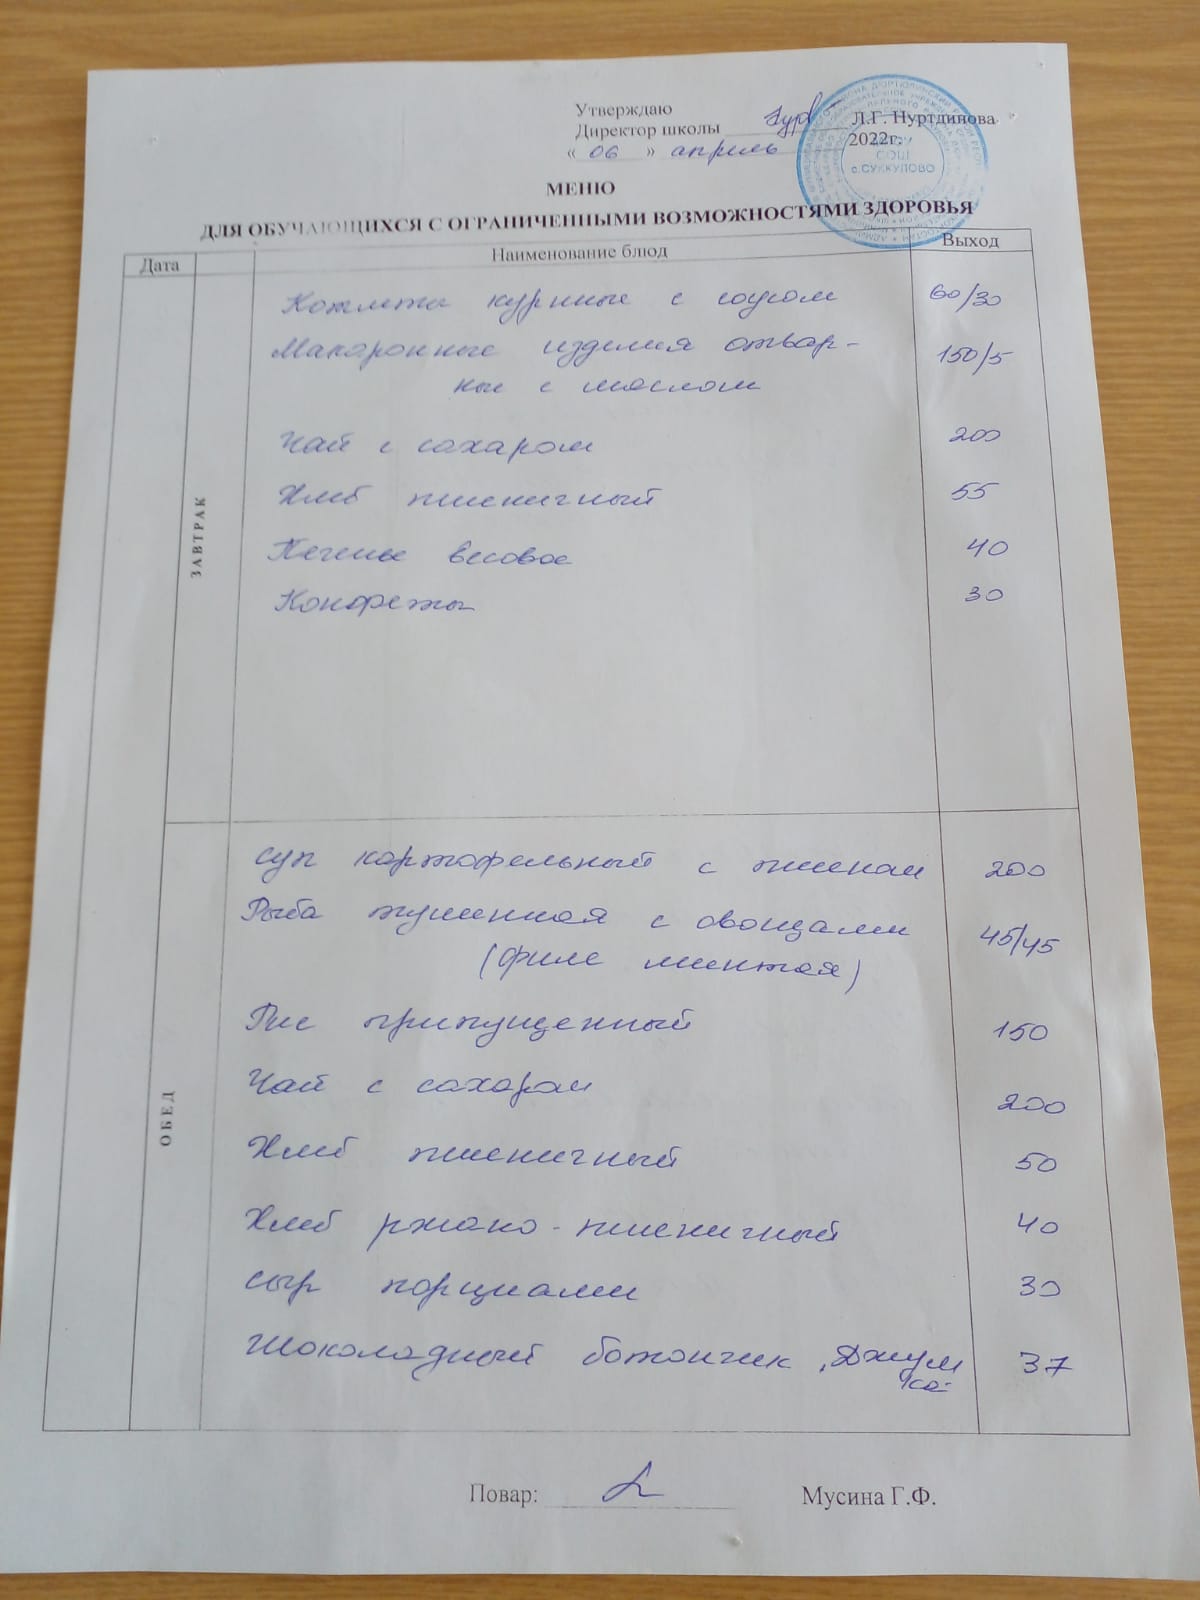 Утверждаю
Директор школы Л.Г. Нуртдинова
« 06 » апрель 2022г.
СОШ
с.СУККУЛОВО
МЕНЮ
ДЛЯ ОБУЧАЮЩИХСЯ С ОГРАНИЧЕННЫМИ ВОЗМОЖНОСТЯМИ ЗДОРОВЬЯ
Дата Наименование блюд Выход
ЗАВТРАК
Котлета куриные с соусом 60/30
Макаронные изделия отвар- 150/5
ные с маслом
Чай с сахаром 200
Хлеб пшеничный 55
Печенье весовое 40
Конфеты 30
ОБЕД
Суп картофельный с пшеном 200
Рыба тушенная с овощами 45/45
(филе минтая)
Рис припущенный 150
Чай с сахаром 200
Хлеб пшеничный 50
Хлеб ржано-пшеничный 40
Сыр порциями 30
Шоколадный батончик 37
Повар: Мусина Г.Ф.